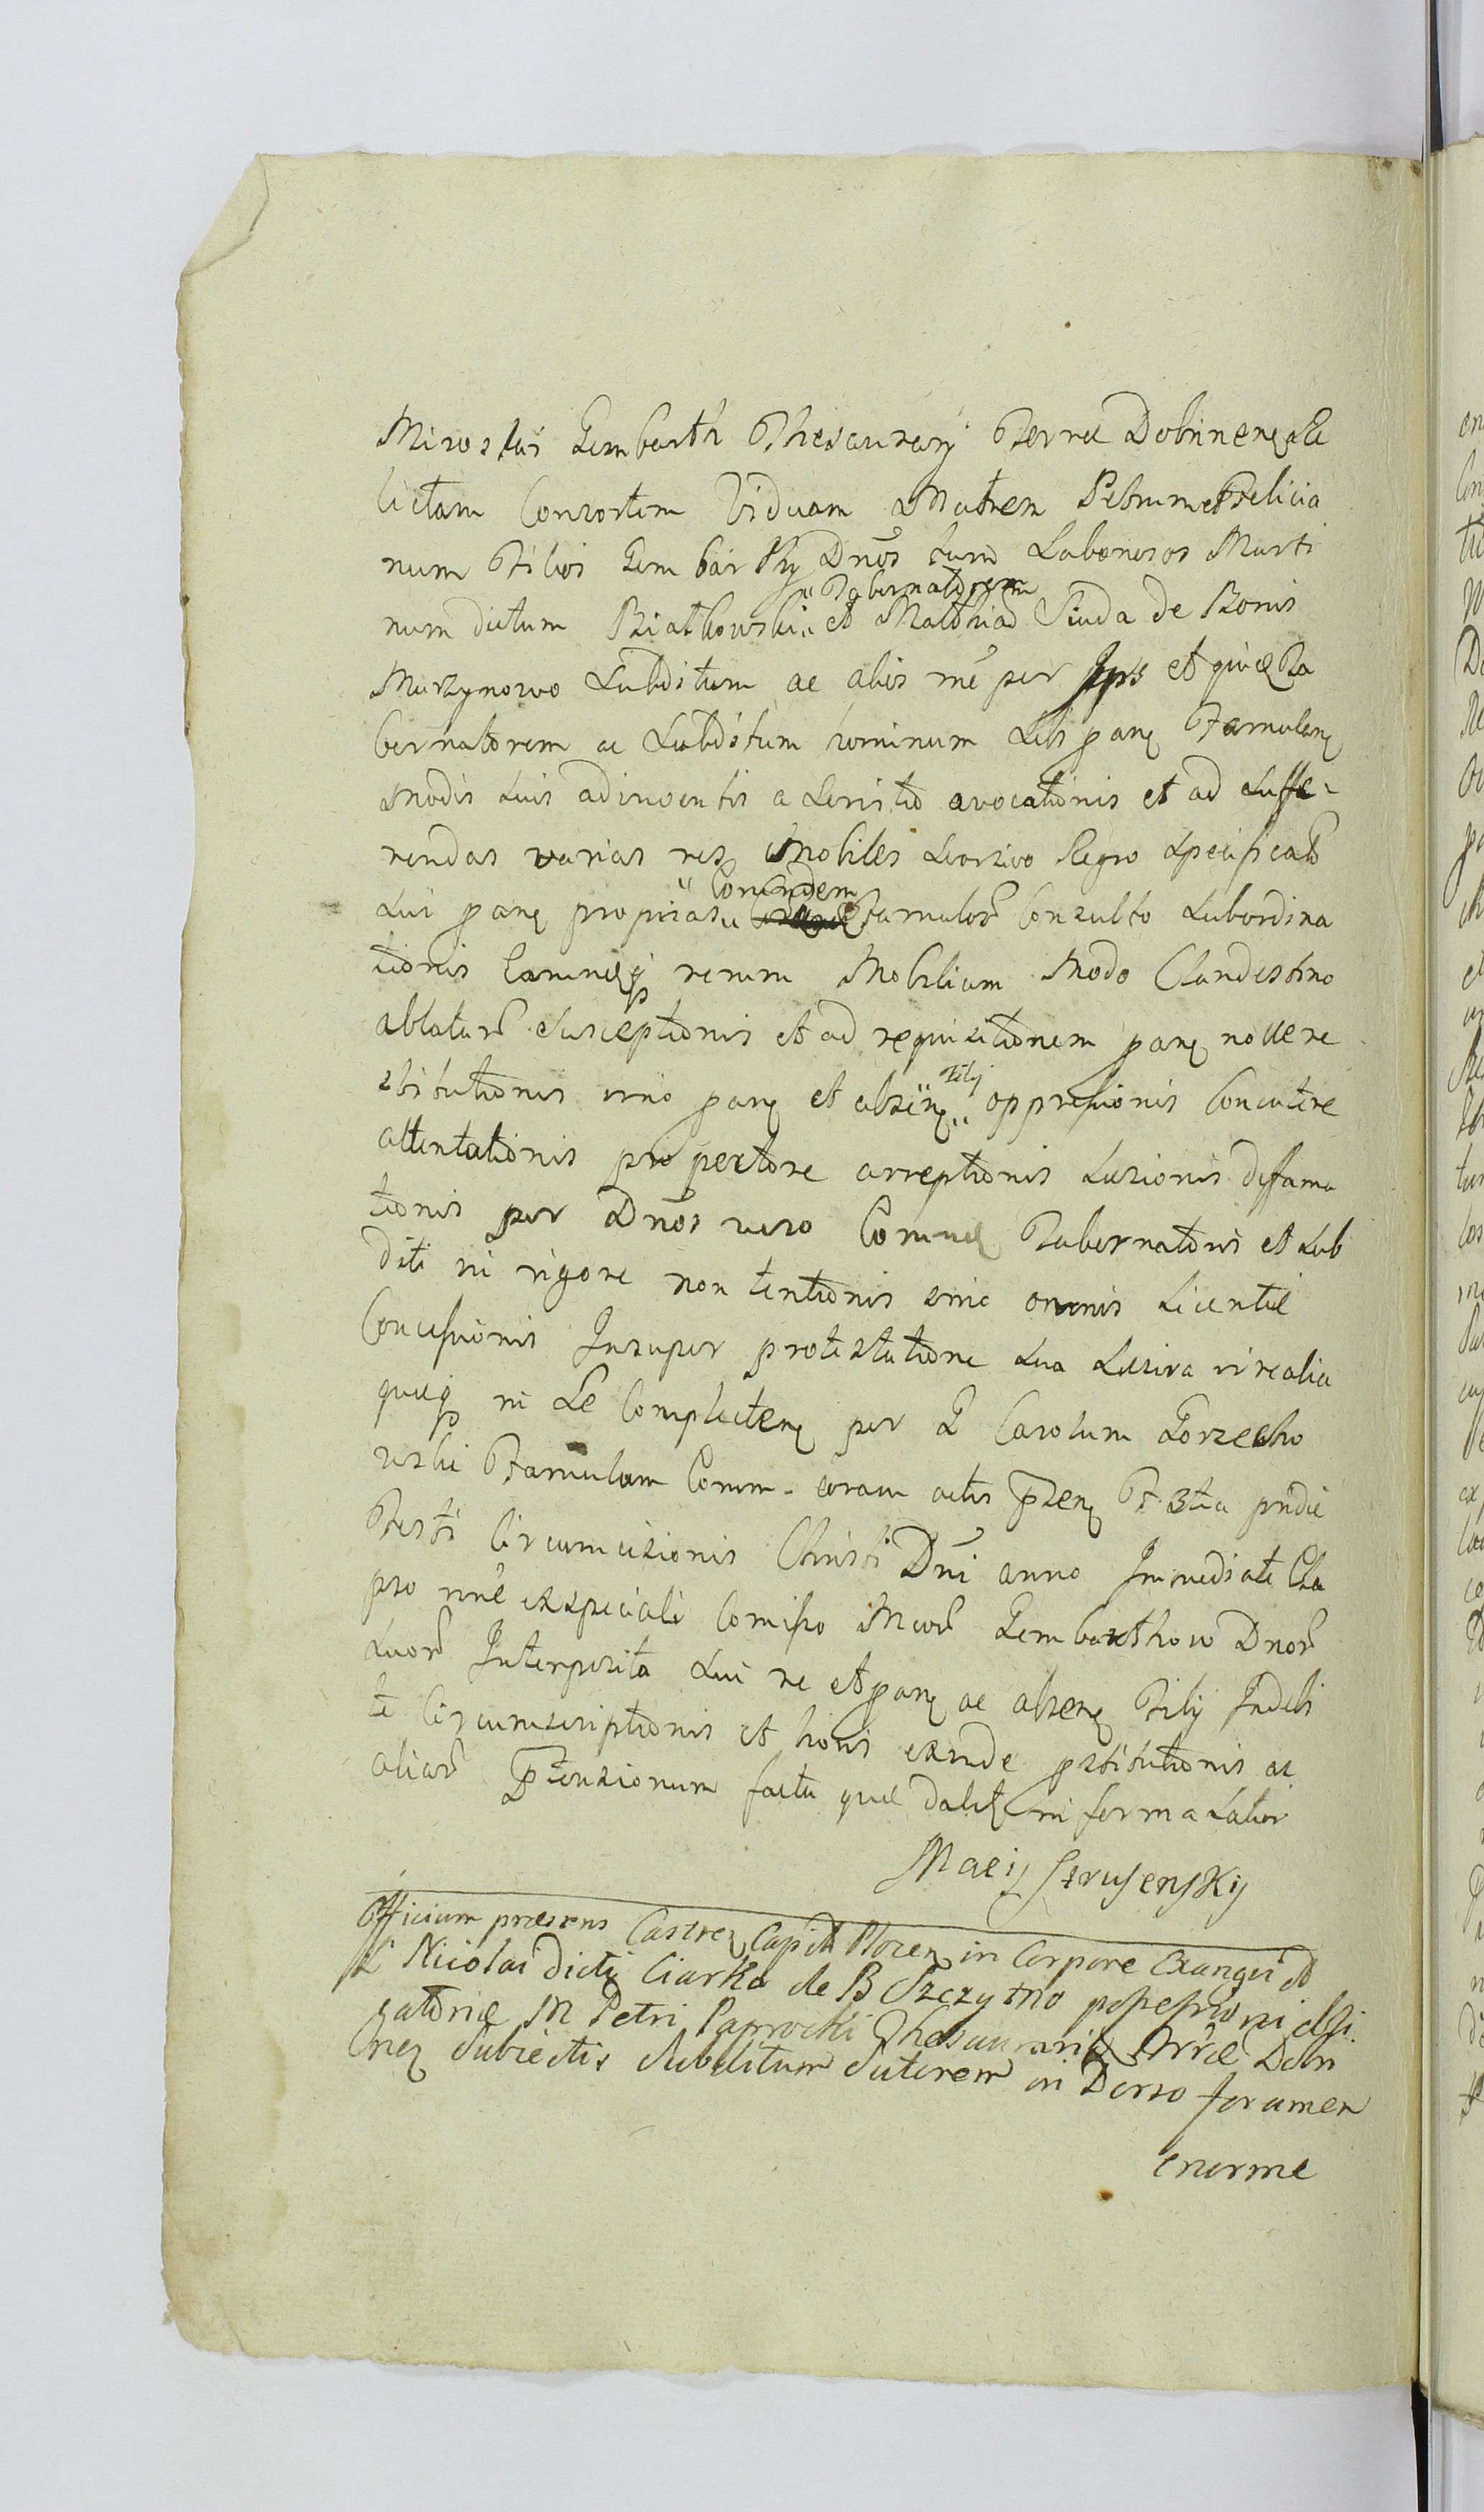 Miroslai Gembarth Thesaurarij Terræ Dobrinenς Re
lictam Consortem Viduam Matrem Petrum et Felicia
num Filios Gembarthy Dnos tum Laboriosos Marti
num dictum Białkowski " Tabernatorem " et Matthiad Siuda de Bonis
Murzynowo Subditum ac alios me per Ipš et quidæ Ta
bernatorem ac Subditum hominum Sibi panς Famulanς
modis suis adinventis a Servitio avocationis et ad suffe-
rendas varias res Mobiles seorsivo Regro specificato
sui panς proprias " Eorundem " Famulor Consulto Subordina
tionis Earumqꝫ rerum Mobilium Modo Clandestino
ablatar Susceptionis et ad requisitionem panς no vere
stitutionis imo panς et absenς " Filij " oppressionis Concutere
attentationis pro pectore arreptionis Læsionis diffama
tionis per Dnos vero Comuę Tabernatoris et Sub
diti in rigore non tentionis imo omnis Licentiæ
Concessionis Insuper protestatione sua Læsiva in realia
quæqꝫ in Se Complectenς per G Carolum Gorzecho
wski Famulum Comm. coram actis præsenς F. 3tia pridie
Festi Circumcisionis Christi Dni anno Immediate Ela
pso nne ex speciali Comisso Mcor Gembarthow Dnor
suor Interposita sui ne et panς ac absenς Filij Indebi
te Circumscriptionis et honis exinde pstitutionis ac
aliar Ptensionum facta quæ dabitς in forma Latior
Maciȷ Strusenskij
Officium præsens Castrenς Capit Plocenς in Corpore Exangui et
L Nicolai dicti Ciarka de B Szczytno possessioni obli
gatoriæ M Petri Paprocki Thesaurarij Terræ Dobri
nenς Subiectis Subditum Sutorem in Dorso foramen
enorme